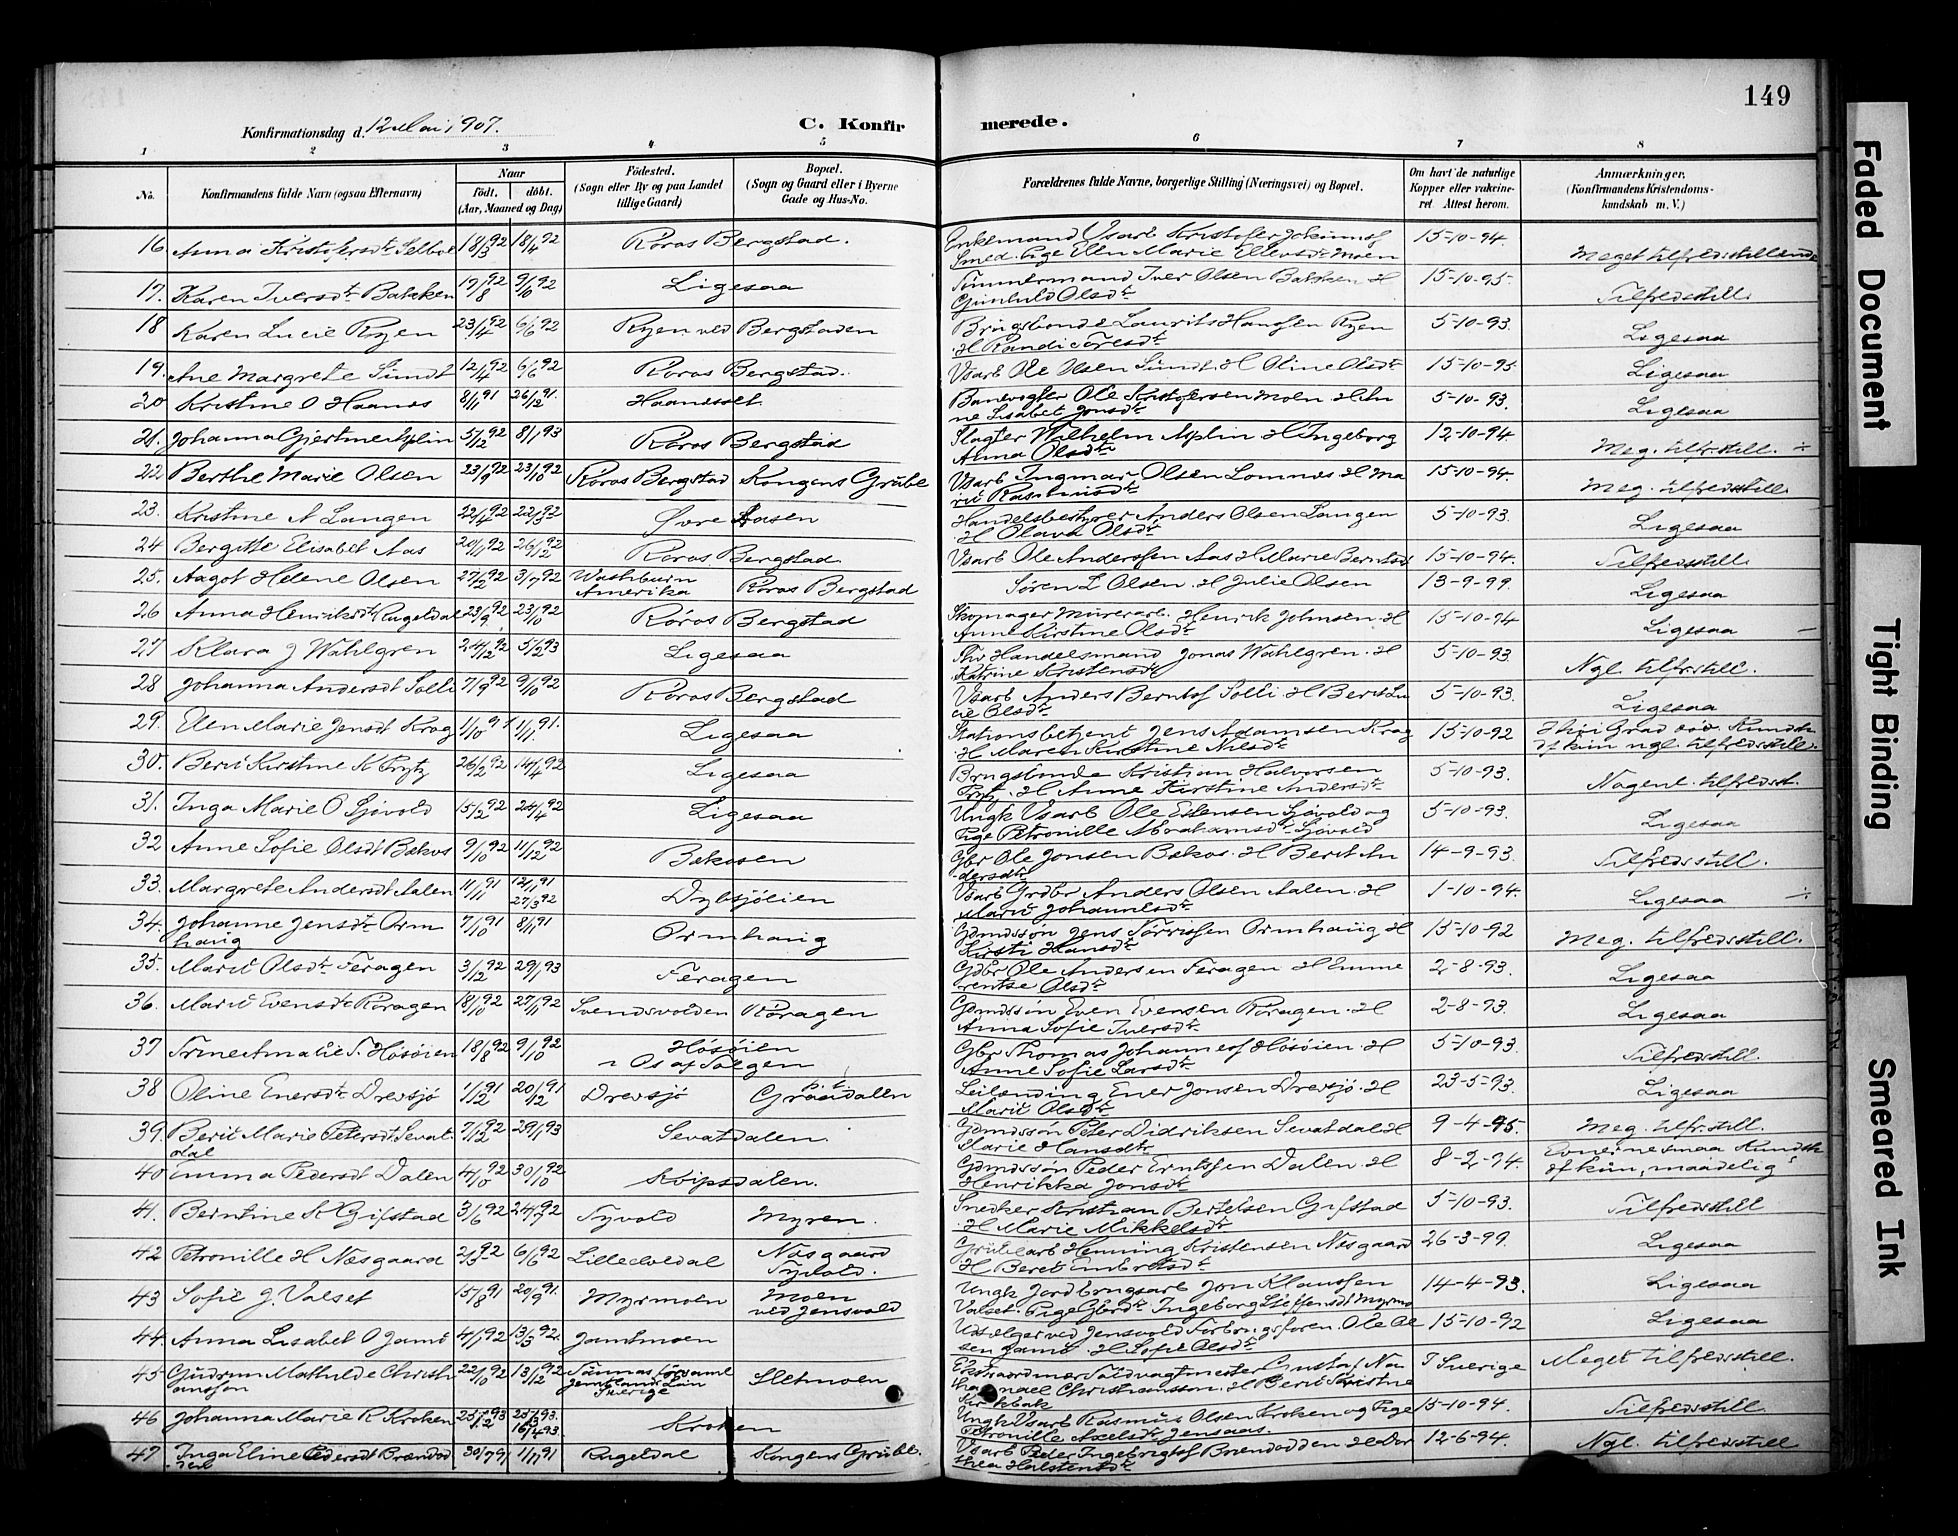 149
Konfirmationsdag d. 12 Mai 1907.
C. Konfirmerede.
1 2 3 4 5 6 7 8
No.
Konfirmandens fulde Navn (ogsaa Efternavn)
Naar
født. døbt.
(Aar, Maaned og Dag)
Fødested.
(Sogn eller By og paa Landet
tillige Gaard)
Bopæl.
(Sogn og Gaard eller i Byerne
Gade og Hus-No.
Forældrenes fulde Navne, borgerlige Stilling (Næringsvei) og Bopæl.
Om havt de naturlige
Kopper eller vakcine-
ret. Attest herom.
Anmærkninger.
(Konfirmandens Kristendoms-
kundskab m. V.)
16 Anna Kristofersdt. Selboe 18/3 92 18/4 92 Röros Bergstad. Enkemand Vsarb Kristofer Johannsf 15-10-94.
Smed. Pige Elen Marie Ellevsdt. Moen Meget tilfredsstillende
17. Karen Iversdt. Bakken 17/8 92 9/10 92 Ligesaa Tømmermand Iver Olsen Bakken H 15-10-95.
Gunhild Olsdt. Tilfredsstill.
18 Karen Lucie Ryen 23/4 92 6/6 92 Ryen ved Bergstaden Brugsbonde Laurits Hansen Ryen 5-10-93.
H Randi Toresdt. Ligesaa
19. Ane Margrete Sundt 12/4 92 6/6 92 Röros Bergstad. Vsarb Ole Olsen Sundt. H Oline Olsdt. 15-10-93 Ligesaa
20 Kristine O Haanes 8/11 91 26/12 91. Haanesset Banevogter Ole Kristofersen Moen H An 5-10-93.
ne Lisabet Jonsdt. Ligesaa
21. Johanna Gjertine Asplin 5/12 92 8/1 93 Röros Bergstad Slagter Wilhelm Asplin H Ingeborg 12-10-94
Anna Olsdt. Meg. tilfr.still. ÷
22 Berthe Marie Olsen 23/9 92 23/10 92 Röros Bergstad Kongens Grube Vsarb Ingmar Olsen Lomnes H Ma 15-10-94.
rit Rasmusdt. Meg. tilfredsstill.
23. Kristine A Langen Øvre Aasen Handelsbestyrer Anders Olsen Langen 5-10-93.
H Olava Olsdt. Ligesaa
24 Bergitte Elisabet Aas 20/11 92 26/12 92 Röros Bergstad. Vsarb Ole Anderssen Aas H Marie Berntsd 15-10-94. Tilfredsstill.
25. Aagot Helene Olsen 27/2 92 3/7 92 Washburn
Amerika Röros Bergstad Søren L Olsen. H Julie Olsen 13-9-99. Ligesaa
26 Anna Henriksdt. Rugeldal 23/9 92 23/10 92 Röros Bergstad Skomager Murerarb. Henrik Johnsen H 15-10-94
Anne Kirstine Olsdt. Ligesaa –
27 Klara J Wahlgren 24/12 92 5/2 93 Ligesaa Handelsmand Jonas Wahlgren. H 5-10-93.
Katrine Kristensdt. Ngl. tilfr.still.
28 Johanna Andersdt Solli 7/9 92 9/10 92 Röros Bergstad Vsarb Anders Berntsf Solli H Berit Lu 5-10-93.
cie Olsdt. Ligesaa
29. Elen Marie Jensdt Krog 1/10 91 1/11 91. Ligesaa Stationsbetjent Jens Adamsen Krog 15-10-92
H Maren Kirstine Nilsdt. kun ngl. tilfredsstill.
30. Berit Kirstine K Prytz 26/2 92 14/4 92 Ligesaa Brugsbonde Kristian Halvorsen 5-10-93.
Prytz. H Anne Kirstine Andersdt. Nogenl. tilfredsst.
31. Inga Marie O Sjövold 15/2 92 24/4 92 Ligesaa Ungk Vsarb Ole Estensen Sjövold og 5-10-93.
Pige Petronille Abrahamsdt. Sjövold Ligesaa
32 Anne Sofie Olsdt Bakos 9/10 92 11/12 92 Bakosen Gbr Ole Jonsen Bakos. H Berit An 14-9-93.
dersdt. Tilfredsstill.
33. Margrete Andersdt Aalen 11/11 91 12/11 91
27/3 92 Dybsjölien Vsarb Grdbr Anders Olsen Aalen. H 1-10-94.
Marit Johannesdt. Ligesaa ÷
34. Johanne Jensdt. Orm
haug 7/10 91 8/11 91 Ormhaug Gdmdssøn Jens Torrissen Ormhaug H 15-10-92
Kirsti Hansdt. Meg. tilfredsstill.
35. Marit Olsdt. Feragen 3/12 92 29/1 93 Feragen Gdbr Ole Andersen Feragen H Emme 2-8-93.
rentse Olsdt. Ligesaa
36. Marit Evensdt. Röragen 18/10 92 27/11 92 Svendsvolden Röragen Gdmdssön Even Evensen Röragen. H 2-8-93.
Anna Sofie Iversdt. Ligesaa
37 Trine Amalie T. Hösöien 18/8 92 9/10 92 Hösöien
Os af Tolgen Gbr Thomas Johannesf Hösöien. H 5-10-93.
Anne Sofie Larsdt. Tilfredsstill.
38 Oline Enersdt. Drevsjö 1/12 91 20/12 91 Drevsjö p.t.
Gröndalen Leilænding Ener Jonsen Drevsjö. H 23-5-93.
Marit Olsdt. Ligesaa
39. Berit Marie Petersdt Sevat
dal 7/12 92 29/1 93 Sevatdalen. Gdmdssön Peter Didriksen Sevatdal H 9-4-95.
Marie Hansdt. Meg. tilfr.still.
40 Emma Pedersdt Dalen 4/10 92 30/10 92 Kvipsdalen. Gdmdssön Peder Erntssen Dalen. H 8-2-94.
Henrikka Jonsdt. Evnerne smaa Kundsk
af kun maadelig
41. Berntine K Gifstad 3/6 92 24/7 92 Tyvold Myren. Snedker Kristian Bertelsen Gifstad 5-10-93.
H Marie Mikkelsdt. Tilfredsstill
42 Petronille H Næsgaard 2/3 92 6/6 92 Lilleelvedal Næsgaard
Tyvold. Grubearb Henning Kristensen Næsgaard 26-3-99.
H Beret Embretsdt. Ligesaa
43 Sofie J. Valset 15/8 91 20/9 91. Myrmoen Moen
ved Jensvold Ungk Jordbrugsarb Jon Klaussen 14-4-93.
Valset. Pige Gbrdt. Ingeborg Steffensdt Myrmo Ligesaa
44. Anna Lisabet O Jamt 4/1 92 13/3 92. Jamtmoen Udsælger ved Jensvold Forbrugsforen. Ole Ol 15-10-92
sen Jamt. H Sofie Olsdt. Ligesaa
45 Gudrun Mathilde Christi
ansson 22/10 92 13/12 92 Tännäs
Jemtlands Län
Sverige Sletmoen Ekstraordinær Toldvagtmester Gustaf Na I Sverige
thanael Christiansson. H Berit Kristine
Kirkbak Meget tilfredsstill.
46 Johanna Marie R Kroken Kroken Ungk Vsarb Rasmus Olsen Kroken og Pige 15-10-94.
Petronille Axelsdt. Jensaas. Tilfredsstill.
47 Inga Eline Pedersdt Brændod
den 30/7 91 1/11 91 Rugeldal Kongens Grube. Vsarb Peder Ingebrigtsf Brændodden H Dor 12-6-94.
thea Halstensdt. Ngl. tilfredsstill
Faded Document
Tight Binding
Smeared Ink